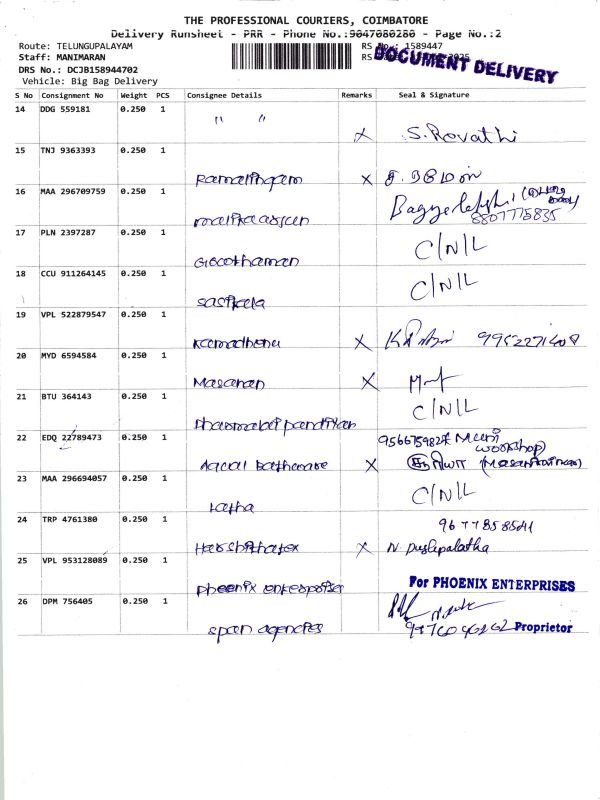 THE PROFESSIONAL COURIERS, COIMBATORE
Delivery Runsheet - PRR - Phone No.:9047080280 - Page No.:2
Route: TELUNGUPALAYAM
RS No.: 1589447
Staff: MANIMARAN
RS
DOCUMENT DELIVERY
DRS No.: DCJB158944702
Vehicle: Big Bag Delivery
S No Consignment No Weight PCS Consignee Details Remarks Seal & Signature
14 DDG 559181 0.250 1 " "
X S. Rovathi
15 TNJ 9363393 0.250 1
Ramalingam X
16 MAA 296709759 0.250 1
8807775835
17 PLN 2397287 0.250 1
C/N/L
18 CCU 911264145 0.250 1
Sasikala C/N/L
19 VPL 522879547 0.250 1
Kamadhenu X 9952271408
20 MYD 6594584 0.250 1
Masanan X
21 BTU 364143 0.250 1
C/N/L
22 EDQ 22789473 0.250 1
workshop)
X
23 MAA 296694057 0.250 1
Latha C/N/L
24 TRP 4761380 0.250 1
9677858541
X N. Puslapalatha
25 VPL 953128089 0.250 1
phoenix enterpriser
For PHOENIX ENTERPRISES
26 DPM 756405 0.250 1
span agencies
Proprietor